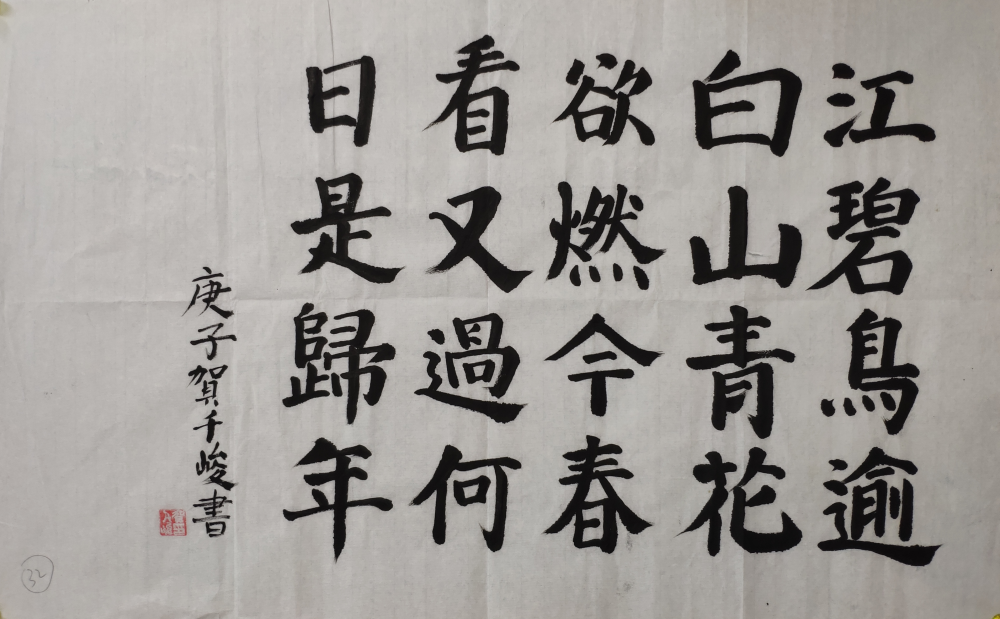 江碧鳥逾
白山青花
欲燃今春
看又過何
日是歸年
庚子賀千峻書
32